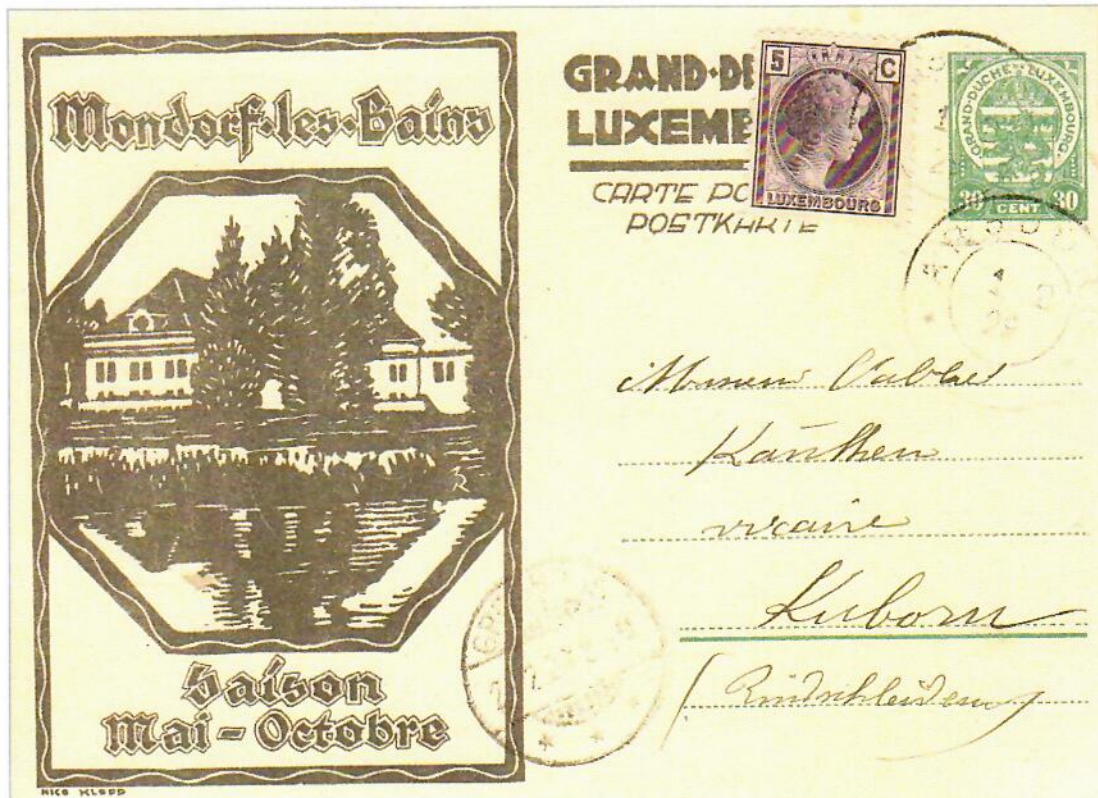 Mondorf-les-Bains
Saison
Mai - Octobre
NICO KLOPP
GRAND-D
LUXEMB
CARTE PO
POSTKARTE
5 C
LUXEMBOURG
GRAND-DUCHÉ LUXEMBOURG
30 CENT 30
Monsieur l'abbé
Kauthen
vicaire
Kuborn
(Rindschleiden)